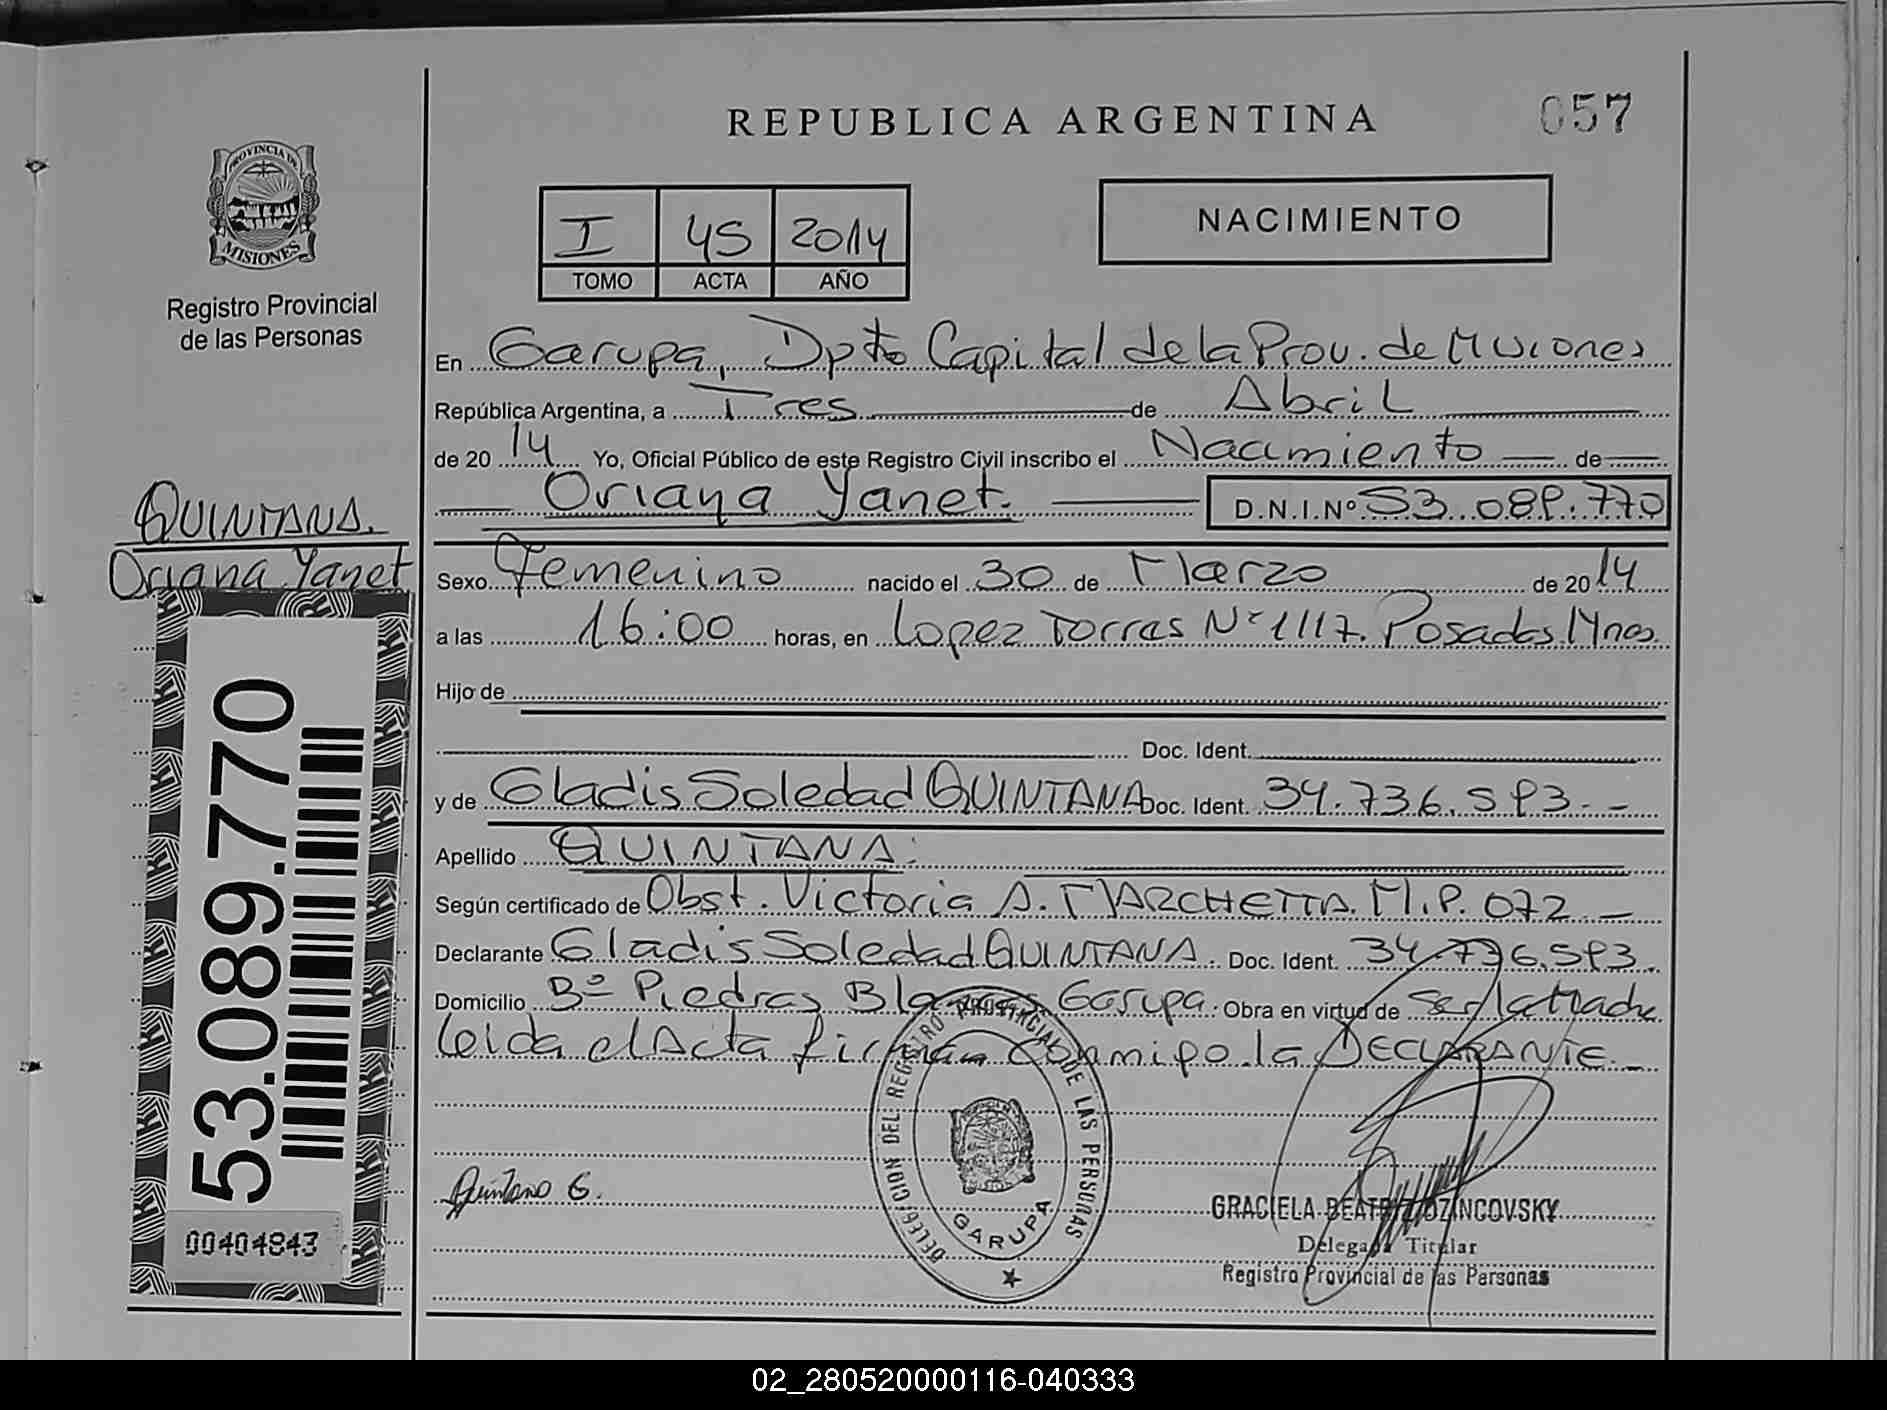 REPUBLICA ARGENTINA
057
PROVINCIA DE
MISIONES
Registro Provincial
de las Personas
I 45 2014
TOMO ACTA AÑO
NACIMIENTO
En Garupa, Dpto Capital de la Prov. de Misiones
República Argentina, a Tres de Abril
de 2014 Yo, Oficial Público de este Registro Civil inscribo el Nacimiento de
Oriana Yanet. D.N.I.Nº 53.089.770
QUINTANA.
Oriana Yanet
Sexo Femenino nacido el 30 de Marzo de 2014
a las 16:00 horas, en Lopez Torres Nº 1117. Posadas Mnes.
Hijo de
Doc. Ident.
y de Gladis Soledad QUINTANA Doc. Ident. 34.736.593.-
Apellido QUINTANA.
Según certificado de Obst. Victoria A. MARCHETTA. M.P. 072
Declarante Gladis Soledad QUINTANA. Doc. Ident. 34.736.593.
Domicilio Bº Piedras Blancas Garupa. Obra en virtud de ser la Madre
leida el Acta firman conmigo la DECLARANTE.
53.089.770
00404843
Quintana G.
DELEGACION DEL REGISTRO PROVINCIAL DE LAS PERSONAS
GARUPA
GRACIELA BEATRIZ OZINCOVSKY
Delegada Titular
Registro Provincial de las Personas
02_280520000116-040333